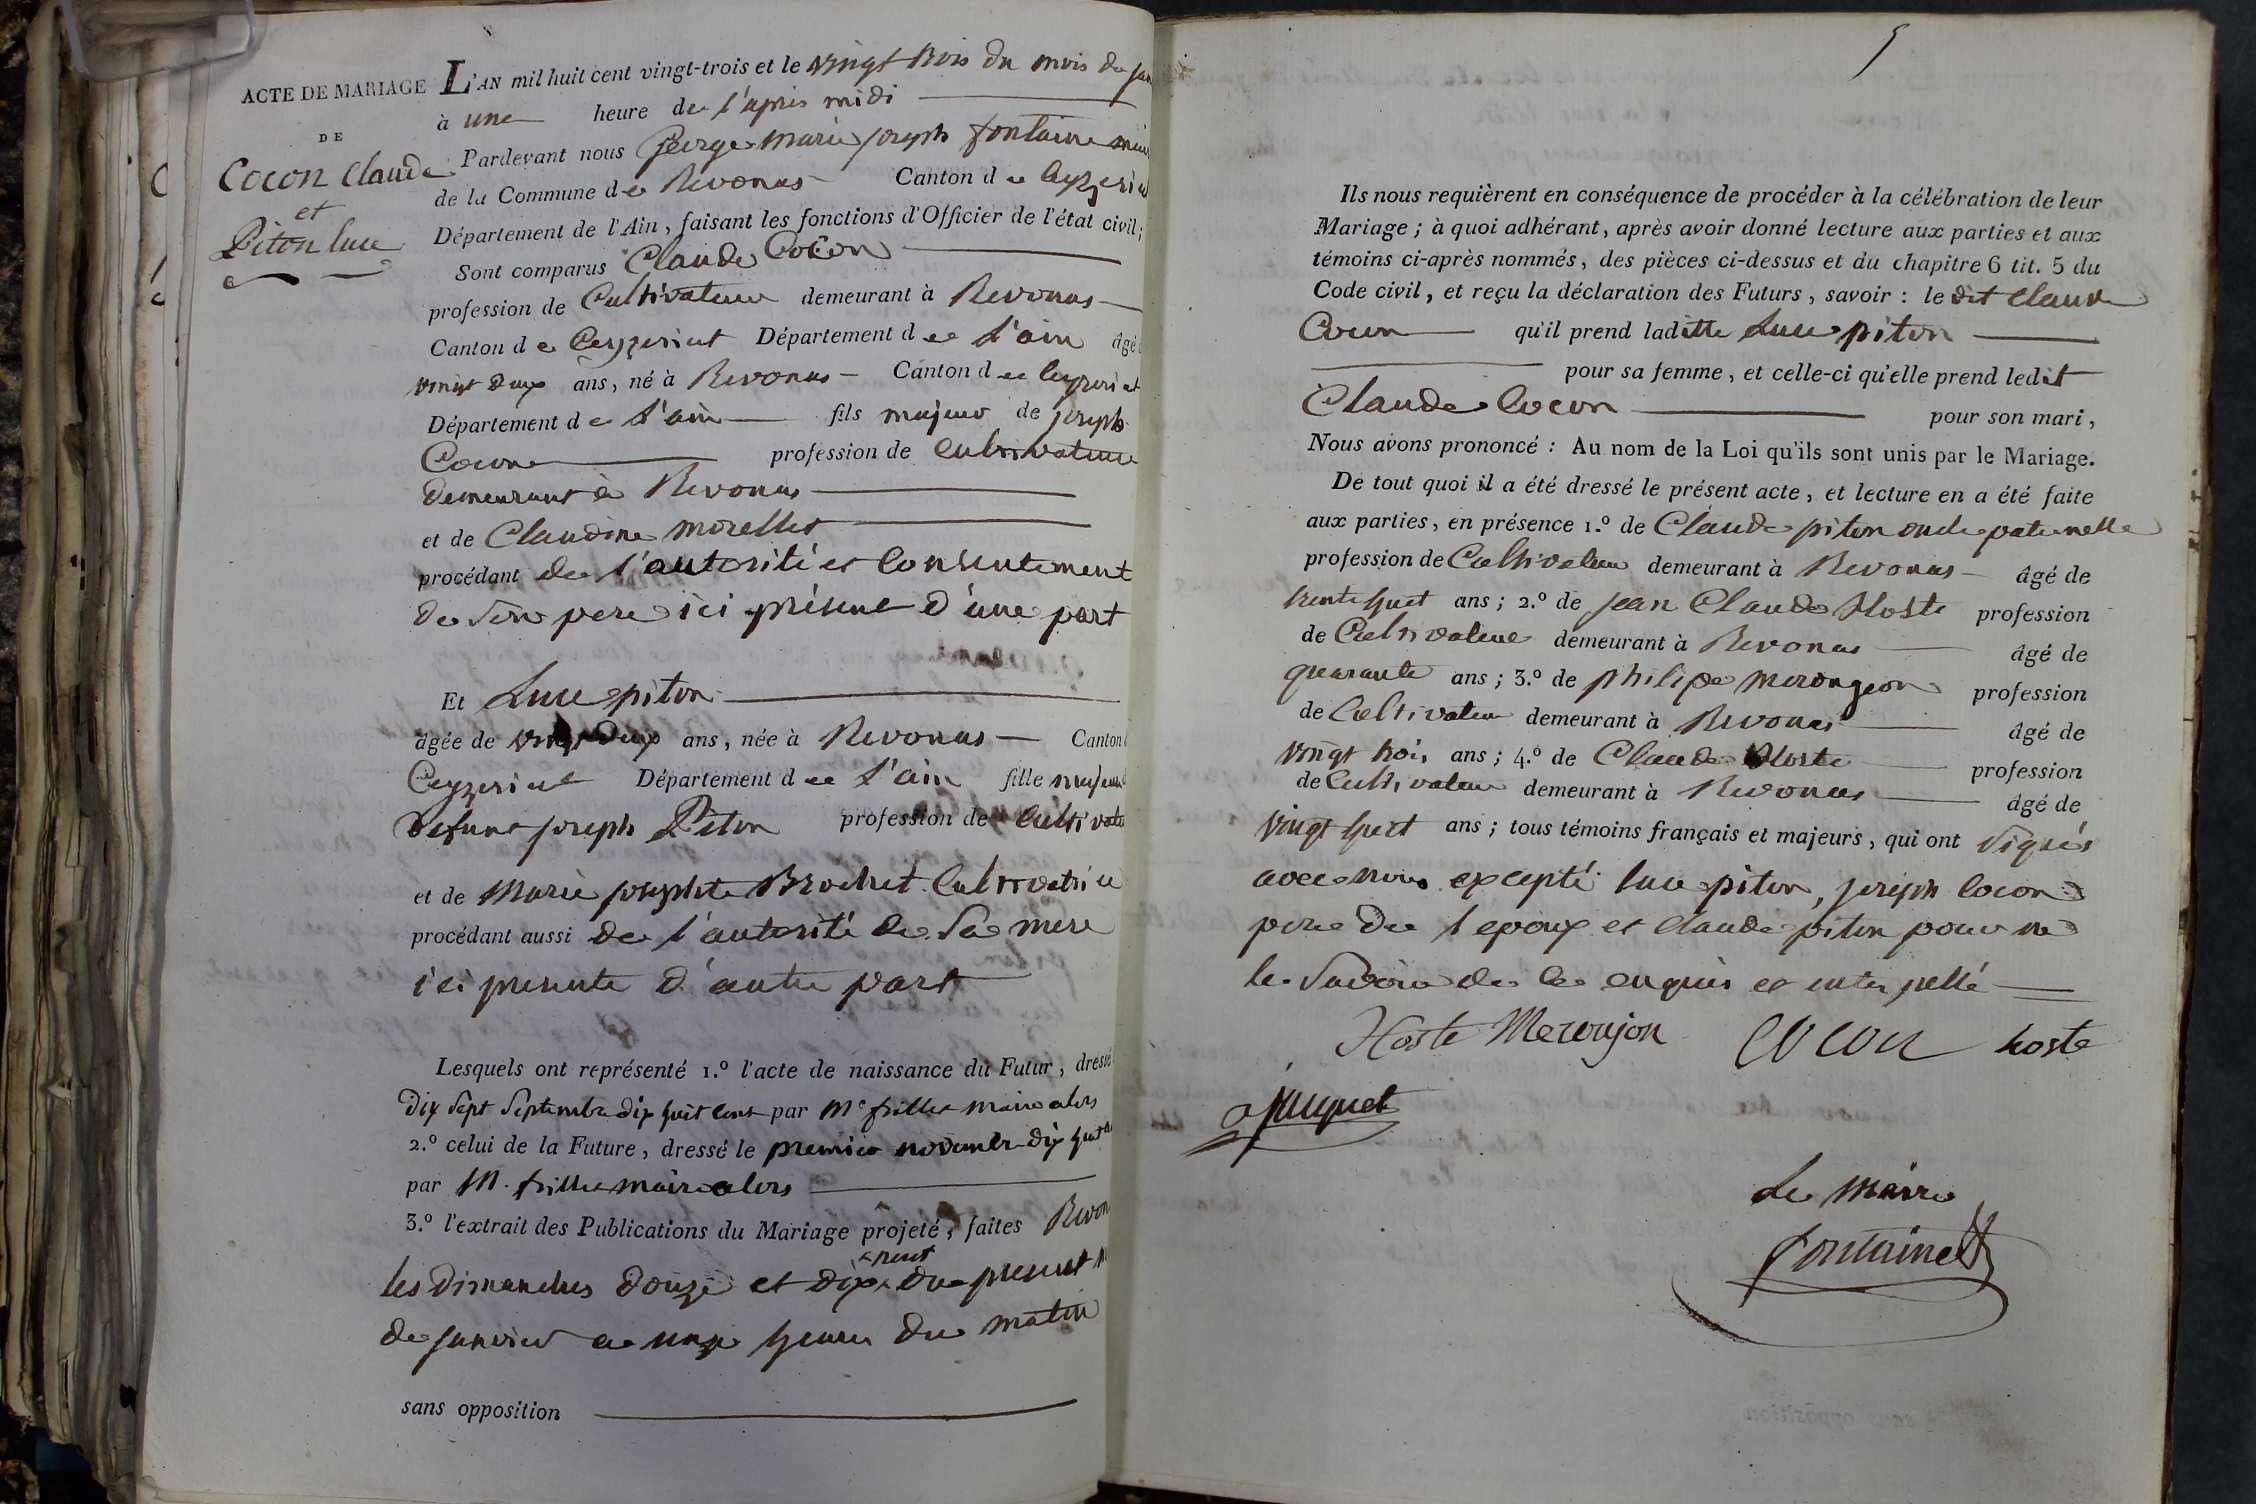 ACTE DE MARIAGE
DE
Cocon Claude
et
Piton luce
L'AN mil huit cent vingt-trois et le vingt trois du mois de jan
à une heure de l'après midi
Pardevant nous George marie joseph fontaine maire
de la Commune de Revonas Canton de Ceyzeriat
Département de l'Ain, faisant les fonctions d'Officier de l'état civil;
Sont comparus Claude Cocon
profession de Cultivateur demeurant à Revonas
Canton de Ceyzeriat Département de l'ain âgé
vingt deux ans, né à Revonas Canton de Ceyzeriat
Département de l'ain fils majeur de joseph
Cocon profession de Cultivateur
demeurant à Revonas
et de Claudine morellet
procédant de l'autorité et Consentement
de Son pere ici présent d'une part
Et Luce piton
âgée de vingt deux ans, née à Revonas Canton
Ceyzeriat Département de l'ain fille majeure
defunt joseph Piton profession de Cultivate
et de Marie josephte Brochet Cultivatrice
procédant aussi de l'autorité de Sa mere
ici presente d'autre part
Lesquels ont représenté 1.º l'acte de naissance du Futur, dressé
dix Sept Septembre dix huit cent par Mr frillet maire alors
2.º celui de la Future, dressé le premier novembre dix huit
par M. frillet maire alors
3.º l'extrait des Publications du Mariage projeté, faites Revon
les dimanches douze et dix neuf du present m
de janvier a onze heures du matin
sans opposition
5
Ils nous requièrent en conséquence de procéder à la célébration de leur
Mariage; à quoi adhérant, après avoir donné lecture aux parties et aux
témoins ci-après nommés, des pièces ci-dessus et du chapitre 6 tit. 5 du
Code civil, et reçu la déclaration des Futurs, savoir: le dit Claude
Cocon qu'il prend laditte Luce piton
pour sa femme, et celle-ci qu'elle prend ledit
Claude Cocon pour son mari,
Nous avons prononcé: Au nom de la Loi qu'ils sont unis par le Mariage.
De tout quoi il a été dressé le présent acte, et lecture en a été faite
aux parties, en présence 1.º de Claude piton oncle paternelle
profession de Cultivateur demeurant à Revonas âgé de
trente huit ans; 2.º de jean Claude Hoste profession
de Cultivateur demeurant à Revonas âgé de
quarante ans; 3.º de philipe merongeon profession
de Cultivateur demeurant à Revonas âgé de
vingt trois ans; 4.º de Claude Hoste profession
de Cultivateur demeurant à Revonas âgé de
vingt huit ans; tous témoins français et majeurs, qui ont signés
avec nous excepté luce piton, joseph Cocon
pere de l epoux et Claude piton pour ne
le Savoir de ce enquis et interpellé
Hoste Meroujon Cocon hoste
juquet
Le Maire
fontaine